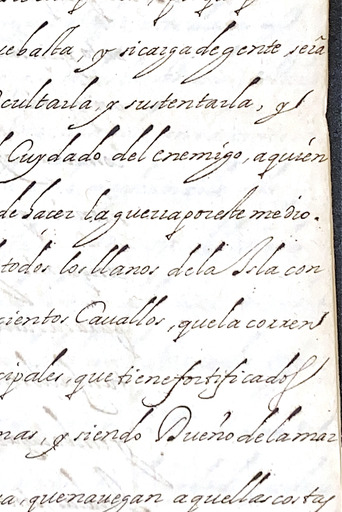 uebalta, y sicarga degente, será
ocultarla, y sustentarla, y
Cuydado del enemigo, aquién
de hacer la guerra por este medio.
todos los llanos dela Isla con
cientos Cavallos, quela corren
cipales, que tiene fortificados
mas, y siendo Dueño dela mar
ua, que nauegan aquellas costas